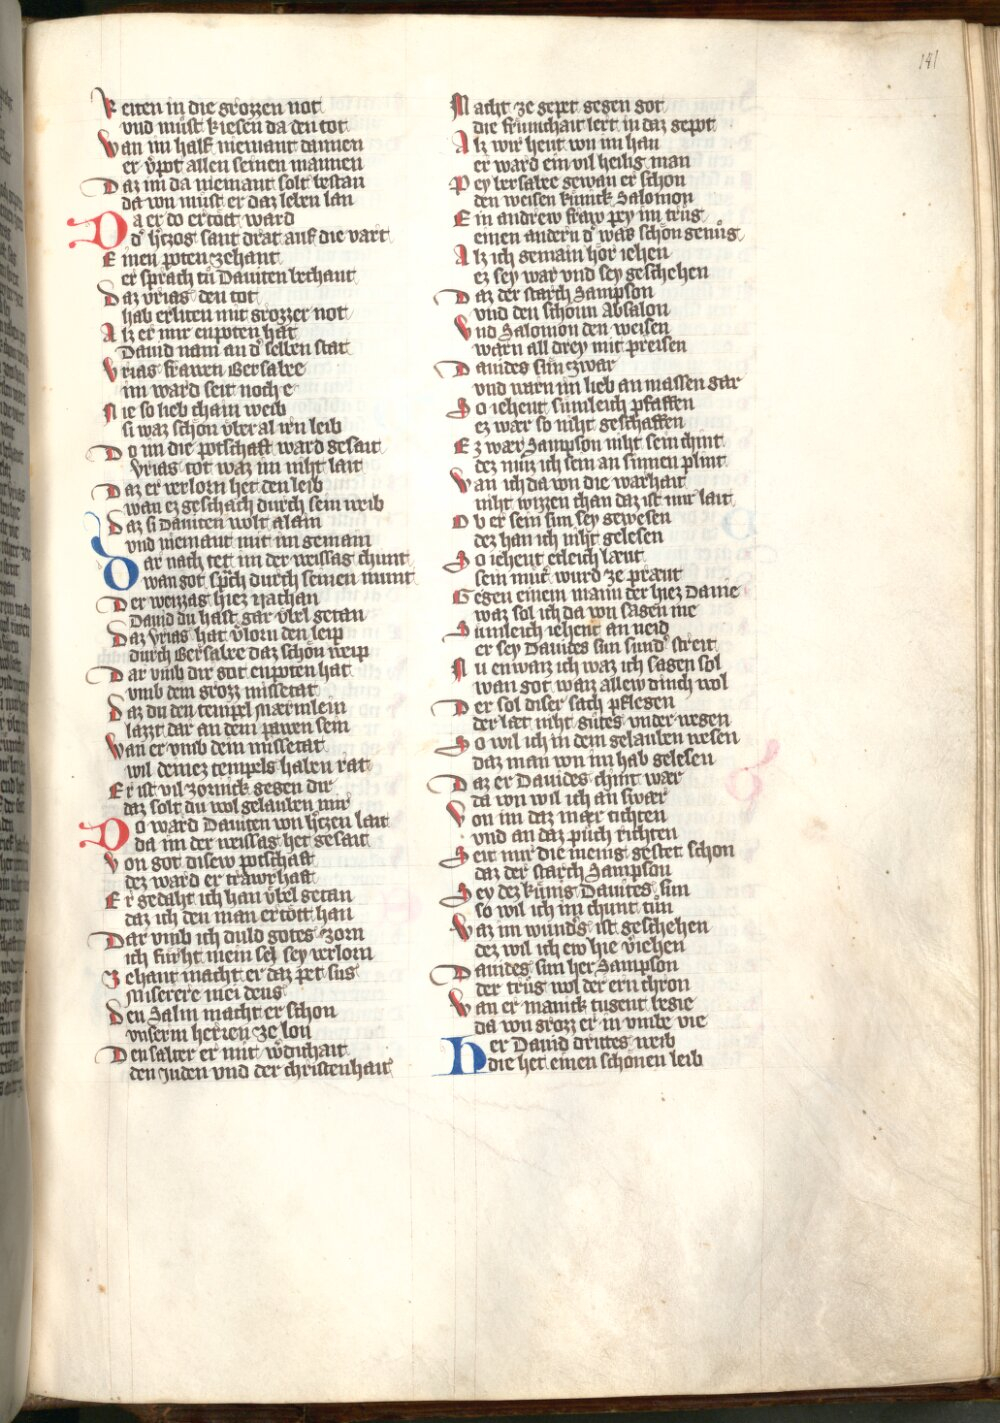 141
Reiten in die grozzen not
vnd must kiesen da den tot
Wan im half niemant dannen
er v̓pot allen seinen mannen
Daz im da niemant solt bestan
da von must er daz leben lan
Da er do ertött ward
d' h̓czog sant drat auf die vart
Einen poten zehant
er sprach tu Dauiten bechant
Daz vrias den tot
hab erliten mit grozzer not
Alz er mir enpoten hat
Dauid nam an d' selben stat
Vrias frawen Bersabee
im ward seit noch e
Nie so lieb chain weib
si waz schon v̓ber al irn leib
Do im die potschaft ward gesait
vrias tot waz im niht lait
Daz er verlorn het den leib
wan ez geschach durch sein weib
Daz si Dauiten wolt alain
vnd niemant mit im gemain
Dar nach tet im der weissag chunt
wan got sp̓ch durch seinen munt
Der weizzag hiez nathan
Dauid du hast gar v̓bel getan
Daz vrias hat v̓lorn den leip
durch Bersabee daz schön weip
Dar vmb dir got enpoten hat
vmb dem grozz missetat
Daz du den tempel marmlein
lazzt dar an dem pawen sein
Wan er vmb dein missetat
wil deinez tempels haben rat
Er ist vil zornick gegen dir
daz solt du wol gelauben mir
Do ward Dauiten von h̓czen lait
da im der weissag het gesait
Von got disew potschaft
dez ward er trawrhaft
Er gedaht ich han v̓bel getan
daz ich den man ertött han
Dar vmb ich duld gotes zorn
ich fürht mein sel sey verlorn
Zehant macht er daz pet sus
Miserere mei deus
Den Salm macht er schon
vnserm herren ze lon
Den salter er mit w̓dichait
den Juden vnd der christenhait
Macht ze gepet gegen got
die frümchait lert in daz gepot
Alz wir heut von im han
er ward ein vil heilig man
Pey bersabee gewan er schon
den weisen künick Salomon
Ein andrew fraw pey im trüg
einen andern d' was schön genüg
Alz ich gemain hör iehen
ez sey war vnd sey geschehen
Daz der starch Sampson
vnd den schönn Absalon
Vnd Salomon den weisen
warn all drey mit preisen
Dauides sün czwar
vnd warn im lieb an massen gar
So iehent sümleich pfaffen
ez war so niht geschaffen
Ez wær Sampson niht sein chint
dez muz ich sein an sinnen plint
Wan ich da von die warhait
niht wizzen chan daz ist mir lait
Ob er sein sun sey gewesen
dez han ich niht gelesen
So iehent etleich læut
sein mut̓ wurd ze præut
Gegen einem mann der hiez Dame
waz sol ich da von sagen me
Sümleich iehent an neid
er sey Dauides sun sund' streit
Nu enwaiz ich waz ich sagen sol
wan got waiz allew dinch wol
Der sol diser sach pflegen
der læt niht gutes vnder wegen
So wil ich in dem gelauben wesen
daz man von im hab gelesen
Daz er Dauides chint war
da von wil ich an swær
Von im daz mær tichten
vnd an daz puch richten
Seit mir die menig gestet schon
daz der starch Sampson
Sey dez künig Dauides sun
so wil ich im chunt tun
Waz im wund's ist geschehen
dez wil ich ew hie v̓iehen
Dauides sun her Sampson
der trug wol der ern chron
Wan er manick tugent begie
da von grozz er in vmbe vie
Her Dauid drittes weib
die het einen schönen leib